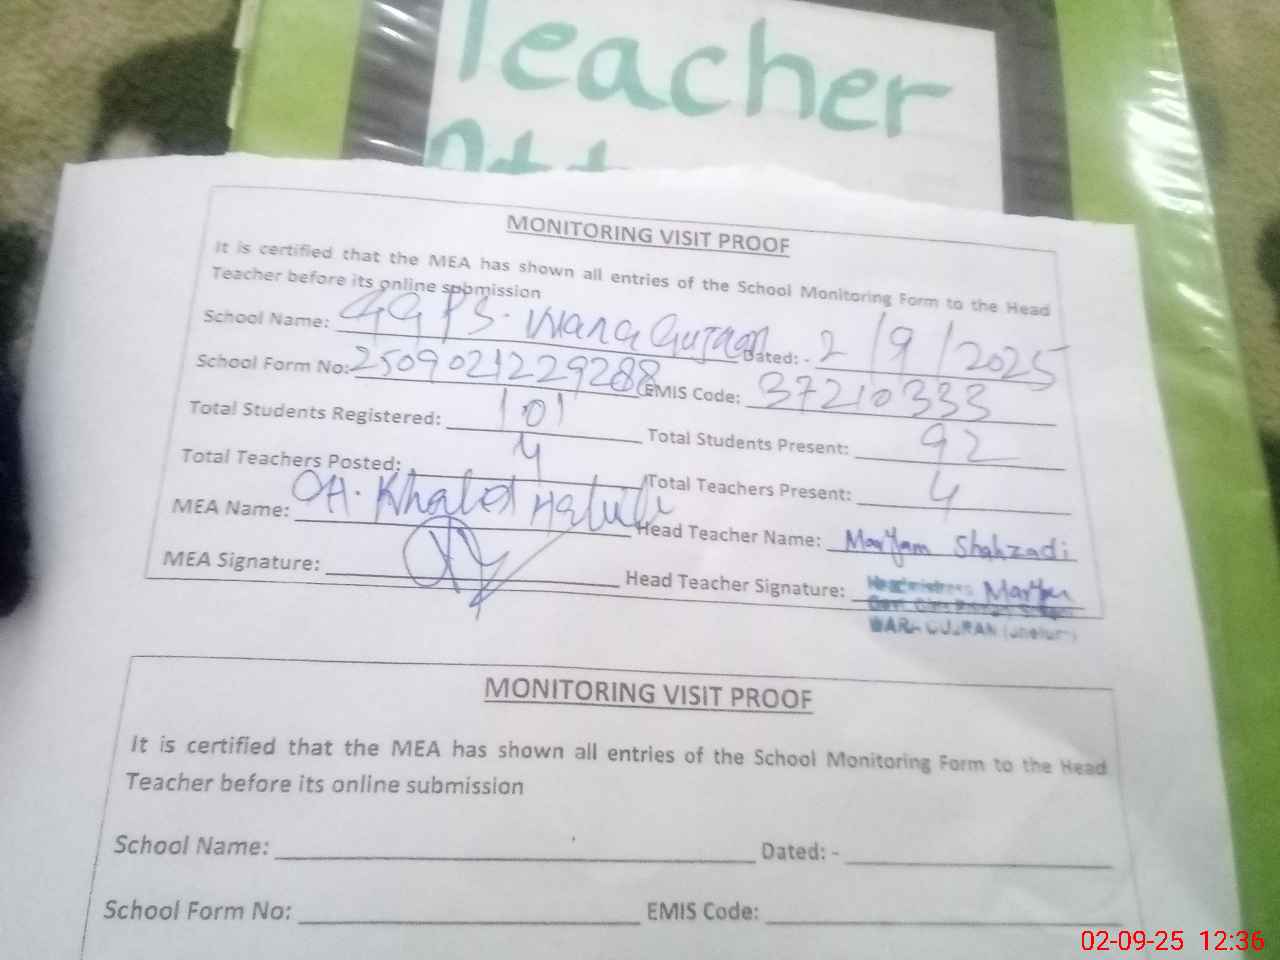 Teacher
MONITORING VISIT PROOF
It is certified that the MEA has shown all entries of the School Monitoring Form to the Head
Teacher before its online submission
School Name: GGPS. Wara Gujran Dated: - 2/9/2025
School Form No: 2509021229288 EMIS Code: 37210333
Total Students Registered: 101 Total Students Present: 92
Total Teachers Posted: 4 Total Teachers Present: 4
MEA Name: CH. Khalid Head Teacher Name: Maryam Shahzadi
MEA Signature: Head Teacher Signature: Maryam
Headmistress
Govt. Girls Primary School
WARA GUJRAN (Jhelum)
MONITORING VISIT PROOF
It is certified that the MEA has shown all entries of the School Monitoring Form to the Head
Teacher before its online submission
School Name: Dated: -
School Form No: EMIS Code:
02-09-25 12:36